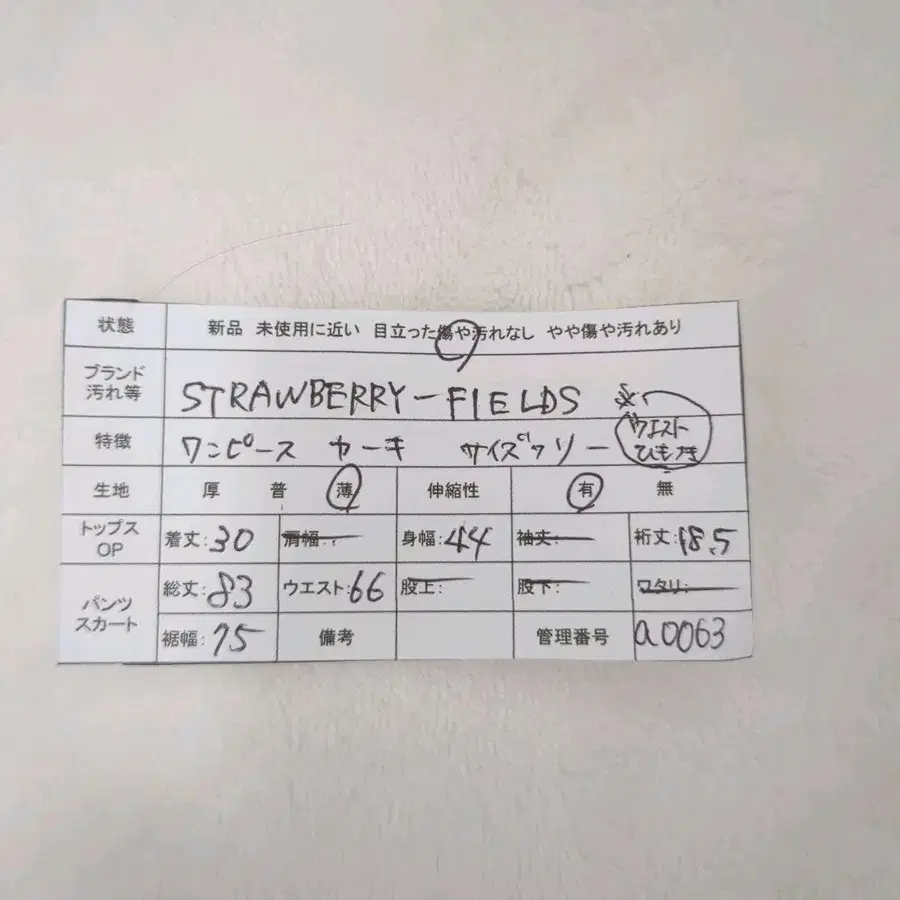 状態 新品 未使用に近い 目立った傷や汚れなし やや傷や汚れあり
ブランド
汚れ等 STRAWBERRY-FIELDS ※
特徴 ワンピース カーキ サイズフリー ウエスト
ひも付き
生地 厚 普 薄 伸縮性 有 無
トップス
OP 着丈:30 肩幅: 身幅:44 袖丈: 裄丈:18.5
パンツ
スカート 総丈:83 ウエスト:66 股上: 股下: ワタリ:
裾幅:75 備考 管理番号 a0063